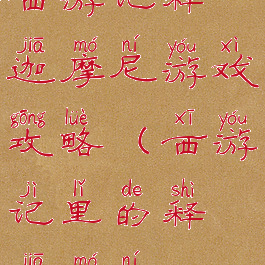 西游记释
jiā mó ní yóu xì
迦摩尼游戏
gōng lüè xī yóu
攻略（西游
jì lǐ de shì
记里的释
jiā mó ní